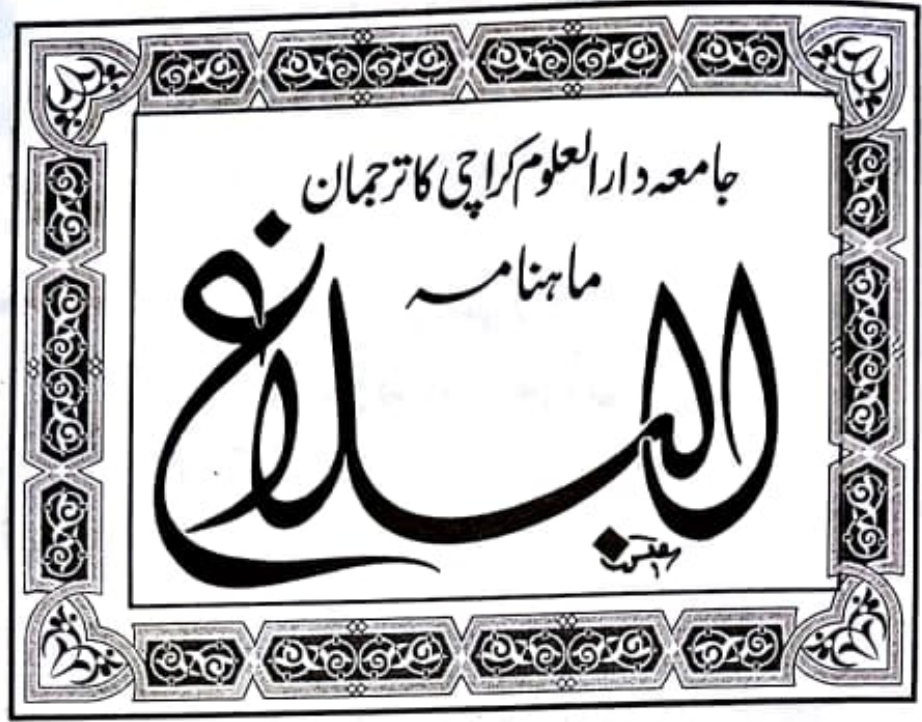 جامعہ دارالعلوم کراچی کا ترجمان
ماہنامہ
البلاغ